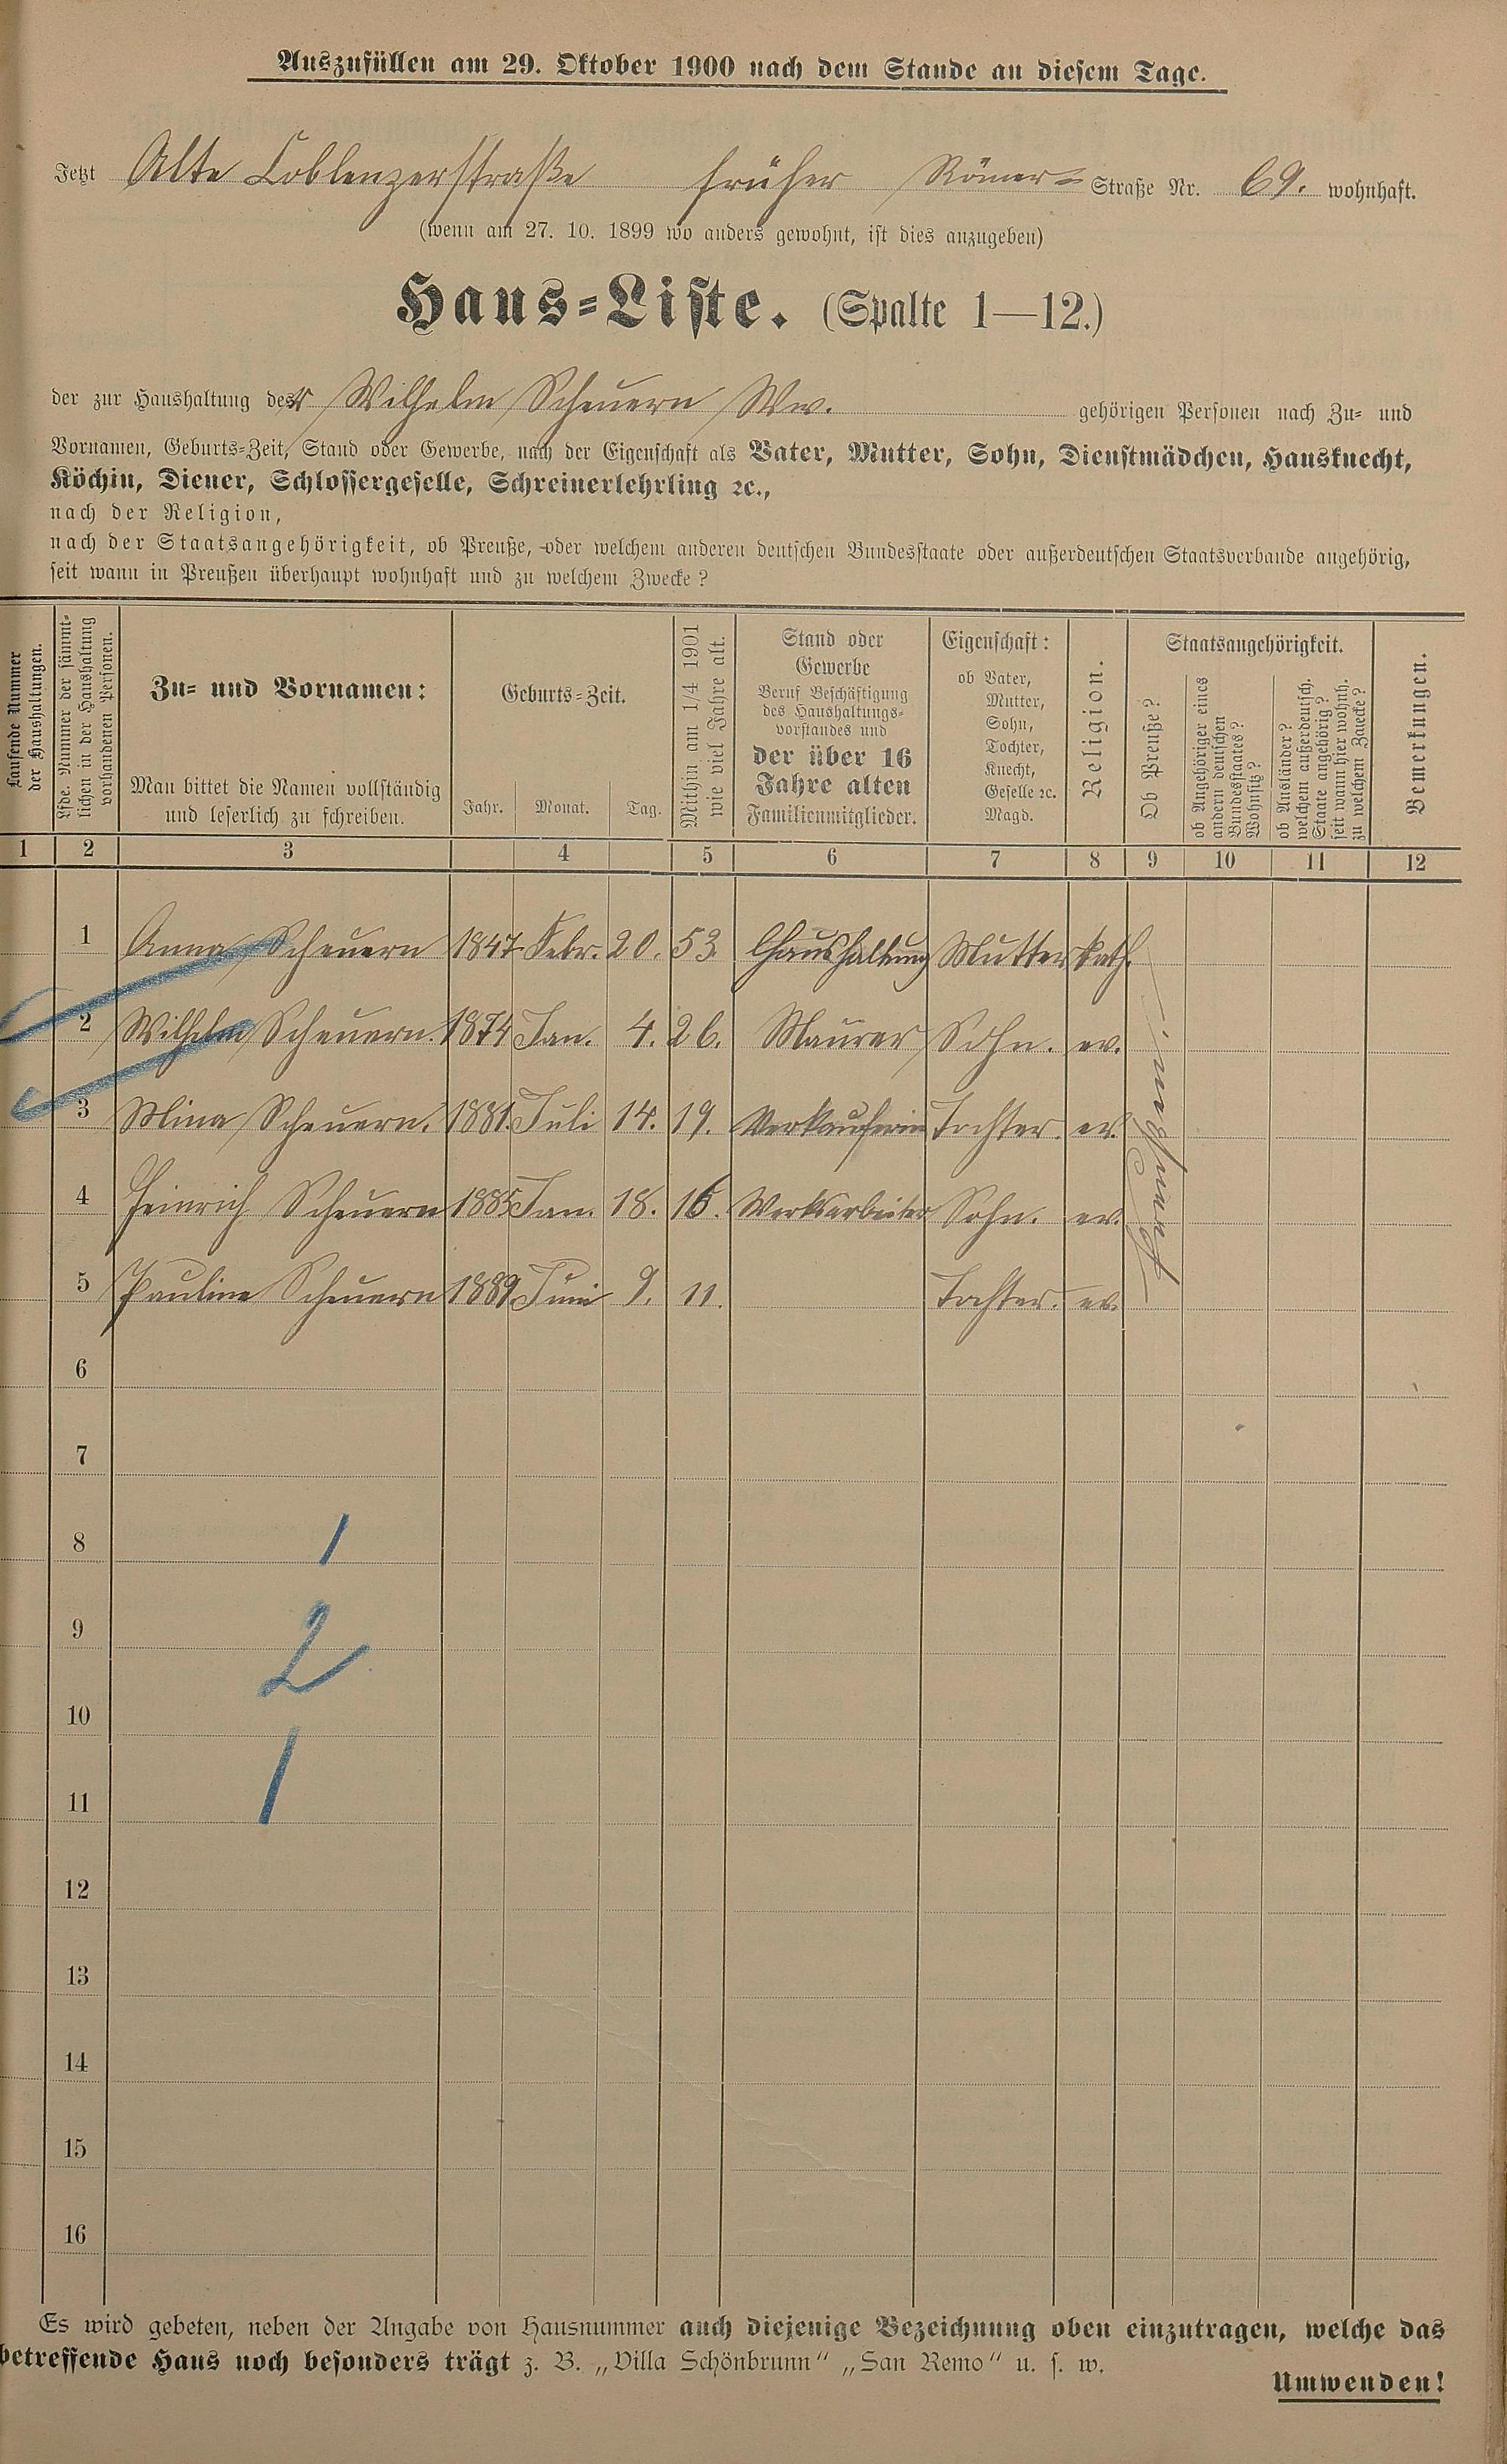 Auszufüllen am 29. Oktober 1900 nach dem Stande an diesem Tage.
Jetzt Alte Coblenzerstraße früher Römer- Straße Nr. 69. wohnhaft.
(wenn am 27. 10. 1899 wo anders gewohnt, ist dies anzugeben)
Haus-Liste. (Spalte 1—12.)
der zur Haushaltung der Wilhelm Scheuern Ww. gehörigen Personen nach Zu- und
Vornamen, Geburts-Zeit, Stand oder Gewerbe, nach der Eigenschaft als Vater, Mutter, Sohn, Dienstmädchen, Hausknecht,
Köchin, Diener, Schlossergeselle, Schreinerlehrling ꝛc.,
nach der Religion,
nach der Staatsangehörigkeit, ob Preuße, oder welchem anderen deutschen Bundesstaate oder außerdeutschen Staatsverbande angehörig,
seit wann in Preußen überhaupt wohnhaft und zu welchem Zwecke?
Laufende Nummer
der Haushaltungen.
Lfde. Nummer der sämmt-
lichen in der Haushaltung
vorhandenen Personen.
Zu- und Vornamen:
Man bittet die Namen vollständig
und leserlich zu schreiben.
Geburts-Zeit.
Jahr. Monat. Tag.
Mithin am 1/4 1901
wie viel Jahre alt.
Stand oder
Gewerbe
Beruf Beschäftigung
des Haushaltungs-
vorstandes und
der über 16
Jahre alten
Familienmitglieder.
Eigenschaft:
ob Vater,
Mutter,
Sohn,
Tochter,
Knecht,
Geselle ꝛc.
Magd.
Religion.
Staatsangehörigkeit.
Ob Preuße?
ob Angehöriger eines
andern deutschen
Bundesstaates?
Wohnsitz?
ob Ausländer?
welchem außerdeutsch.
Staate angehörig?
seit wann hier wohnh.
zu welchem Zwecke?
Bemerkungen.
1 2 3 4 5 6 7 8 9 10 11 12
1 Anna Scheuern 1847 Febr. 20. 53. Haushaltung Mutter kath.
2 Wilhelm Scheuern. 1874 Jan. 4. 26. Maurer Sohn. ev.
3 Mina Scheuern. 1881. Juli 14. 19. Verkäuferin Tochter. ev.
4 Heinrich Scheuern 1885 Jan. 18. 16. Werksarbeiter Sohn. ev.
5 Pauline Scheuern 1889. Juni 9. 11. Tochter. ev.
6
7
8 1
9 2
10
11 1
12
13
14
15
16
Es wird gebeten, neben der Angabe von Hausnummer auch diejenige Bezeichnung oben einzutragen, welche das
betreffende Haus noch besonders trägt z. B. „Villa Schönbrunn“ „San Remo“ u. s. w.
Umwenden!